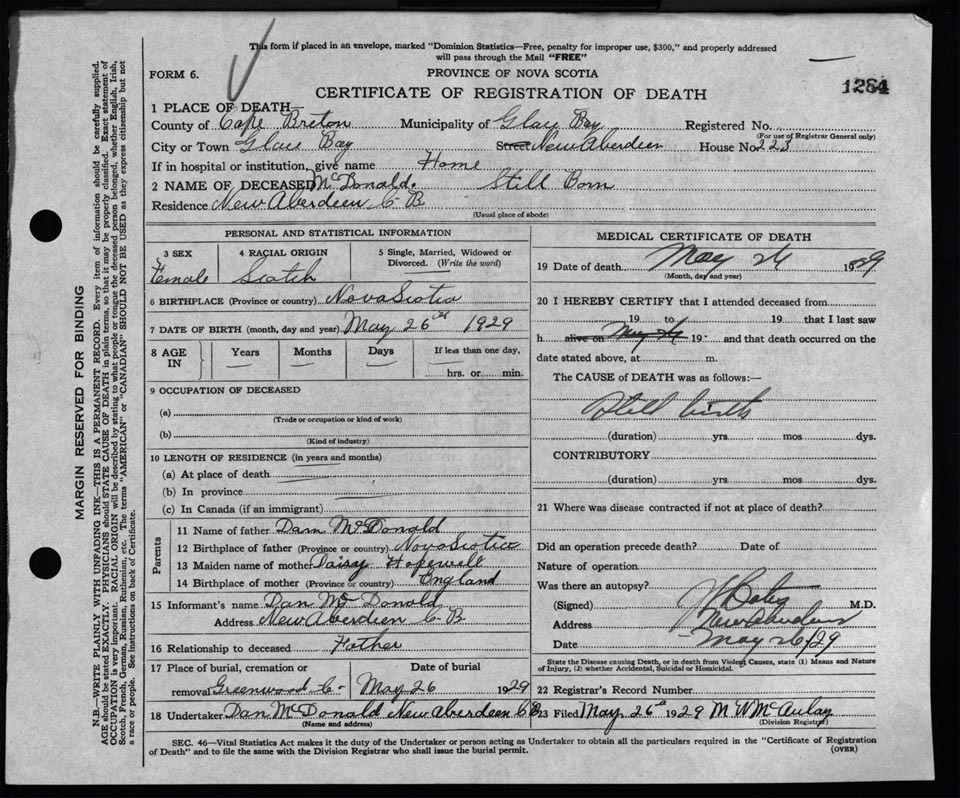 This form if placed in an envelope, marked "Dominion Statistics—Free, penalty for improper use, $300," and properly addressed
will pass through the Mail "FREE"
FORM 6.
PROVINCE OF NOVA SCOTIA
1284
CERTIFICATE OF REGISTRATION OF DEATH
1 PLACE OF DEATH—
County of Cape Breton Municipality of Glace Bay Registered No.
(For use of Registrar General only)
City or Town Glace Bay Street New Aberdeen House No. 223
If in hospital or institution, give name Home
2 NAME OF DECEASED McDonald. Still Born
Residence New Aberdeen C B
(Usual place of abode)
PERSONAL AND STATISTICAL INFORMATION
3 SEX 4 RACIAL ORIGIN 5 Single, Married, Widowed or
Divorced. (Write the word)
Female Scotch
6 BIRTHPLACE (Province or country) Nova Scotia
7 DATE OF BIRTH (month, day and year) May 26th 1929
8 AGE IN Years Months Days If less than one day,
hrs. or min.
9 OCCUPATION OF DECEASED
(a)
(Trade or occupation or kind of work)
(b)
(Kind of industry)
10 LENGTH OF RESIDENCE (in years and months)
(a) At place of death
(b) In province
(c) In Canada (if an immigrant)
Parents
11 Name of father Dan McDonald
12 Birthplace of father (Province or country) Nova Scotia
13 Maiden name of mother Daisy Hopewell
14 Birthplace of mother (Province or country) England
15 Informant's name Dan Mc Donald
Address New Aberdeen C B
16 Relationship to deceased Father
17 Place of burial, cremation or Date of burial
removal Greenwood C- May 26 1929
18 Undertaker Dan McDonald New Aberdeen CB
(Name and address)
MEDICAL CERTIFICATE OF DEATH
19 Date of death May 26 1929
(Month, day and year)
20 I HEREBY CERTIFY that I attended deceased from
19 to 19 that I last saw
h alive on May 19 and that death occurred on the
date stated above, at m.
The CAUSE of DEATH was as follows:—
Still birth
(duration) yrs mos dys.
CONTRIBUTORY
(duration) yrs. mos dys.
21 Where was disease contracted if not at place of death?
Did an operation precede death? Date of
Nature of operation
Was there an autopsy?
(Signed) M.D.
Address New Aberdeen
Date May 26/29
State the Disease causing Death, or in death from Violent Causes, state (1) Means and Nature
of Injury, (2) whether Accidental, Suicidal or Homicidal.
22 Registrar's Record Number
23 Filed May 26th 1929 M W McAulay
(Division Registrar)
SEC. 46—Vital Statistics Act makes it the duty of the Undertaker or person acting as Undertaker to obtain all the particulars required in the "Certificate of Registration
of Death" and to file the same with the Division Registrar who shall issue the burial permit.
(OVER)
MARGIN RESERVED FOR BINDING
N.B.—WRITE PLAINLY WITH UNFADING INK—THIS IS A PERMANENT RECORD. Every item of information should be carefully supplied.
AGE should be stated EXACTLY. PHYSICIANS should STATE CAUSE OF DEATH in plain terms, so that it may be properly classified. Exact statement of
OCCUPATION is very important. RACIAL ORIGIN will be described by stating to what people or tongue the deceased person belonged, whether English, Irish,
Scotch, French, German, Russian, Ruthenian, etc. The terms "AMERICAN" or "CANADIAN" SHOULD NOT BE USED as they express citizenship but not
a race or people. See instructions on back of Certificate.